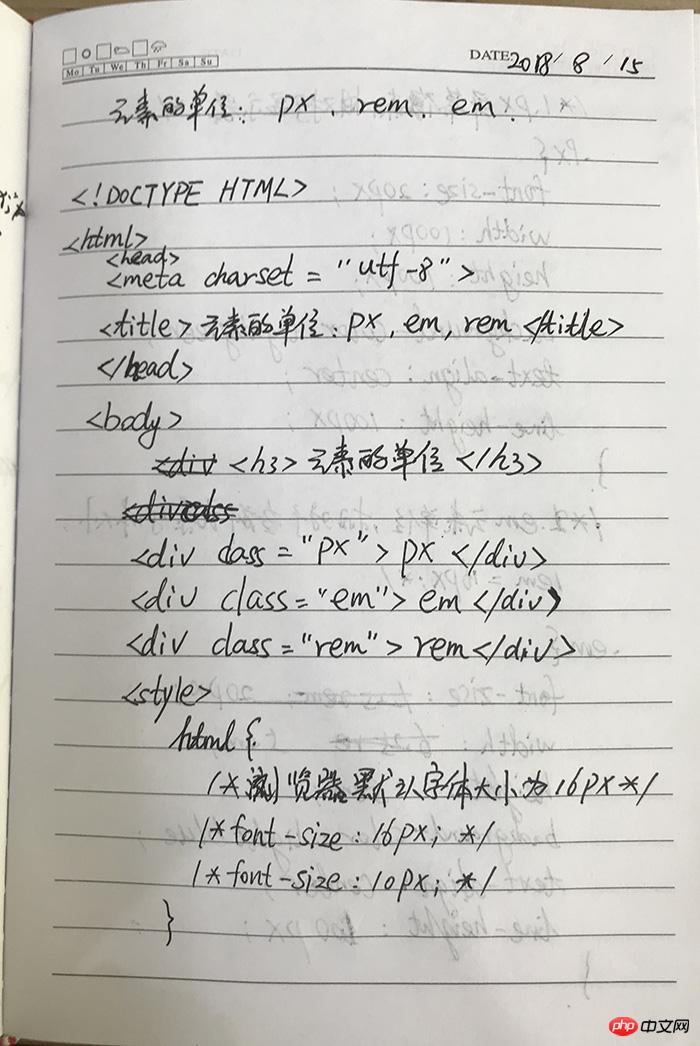 Mo Tu We Th Fr Sa Su
DATE 2018/8/15
元素的单位: px、rem、em.
<!DOCTYPE HTML>
<html>
<head>
<meta charset = "utf-8">
<title>元素的单位: px, em, rem</title>
</head>
<body>
<div <h3>元素的单位</h3>
<div class
<div class="px">px </div>
<div class="em">em</div>
<div class="rem">rem</div>
<style>
html{
/*浏览器默认字体大小为16px*/
/*font-size:16px; */
/*font-size:10px; */
}
php中文网